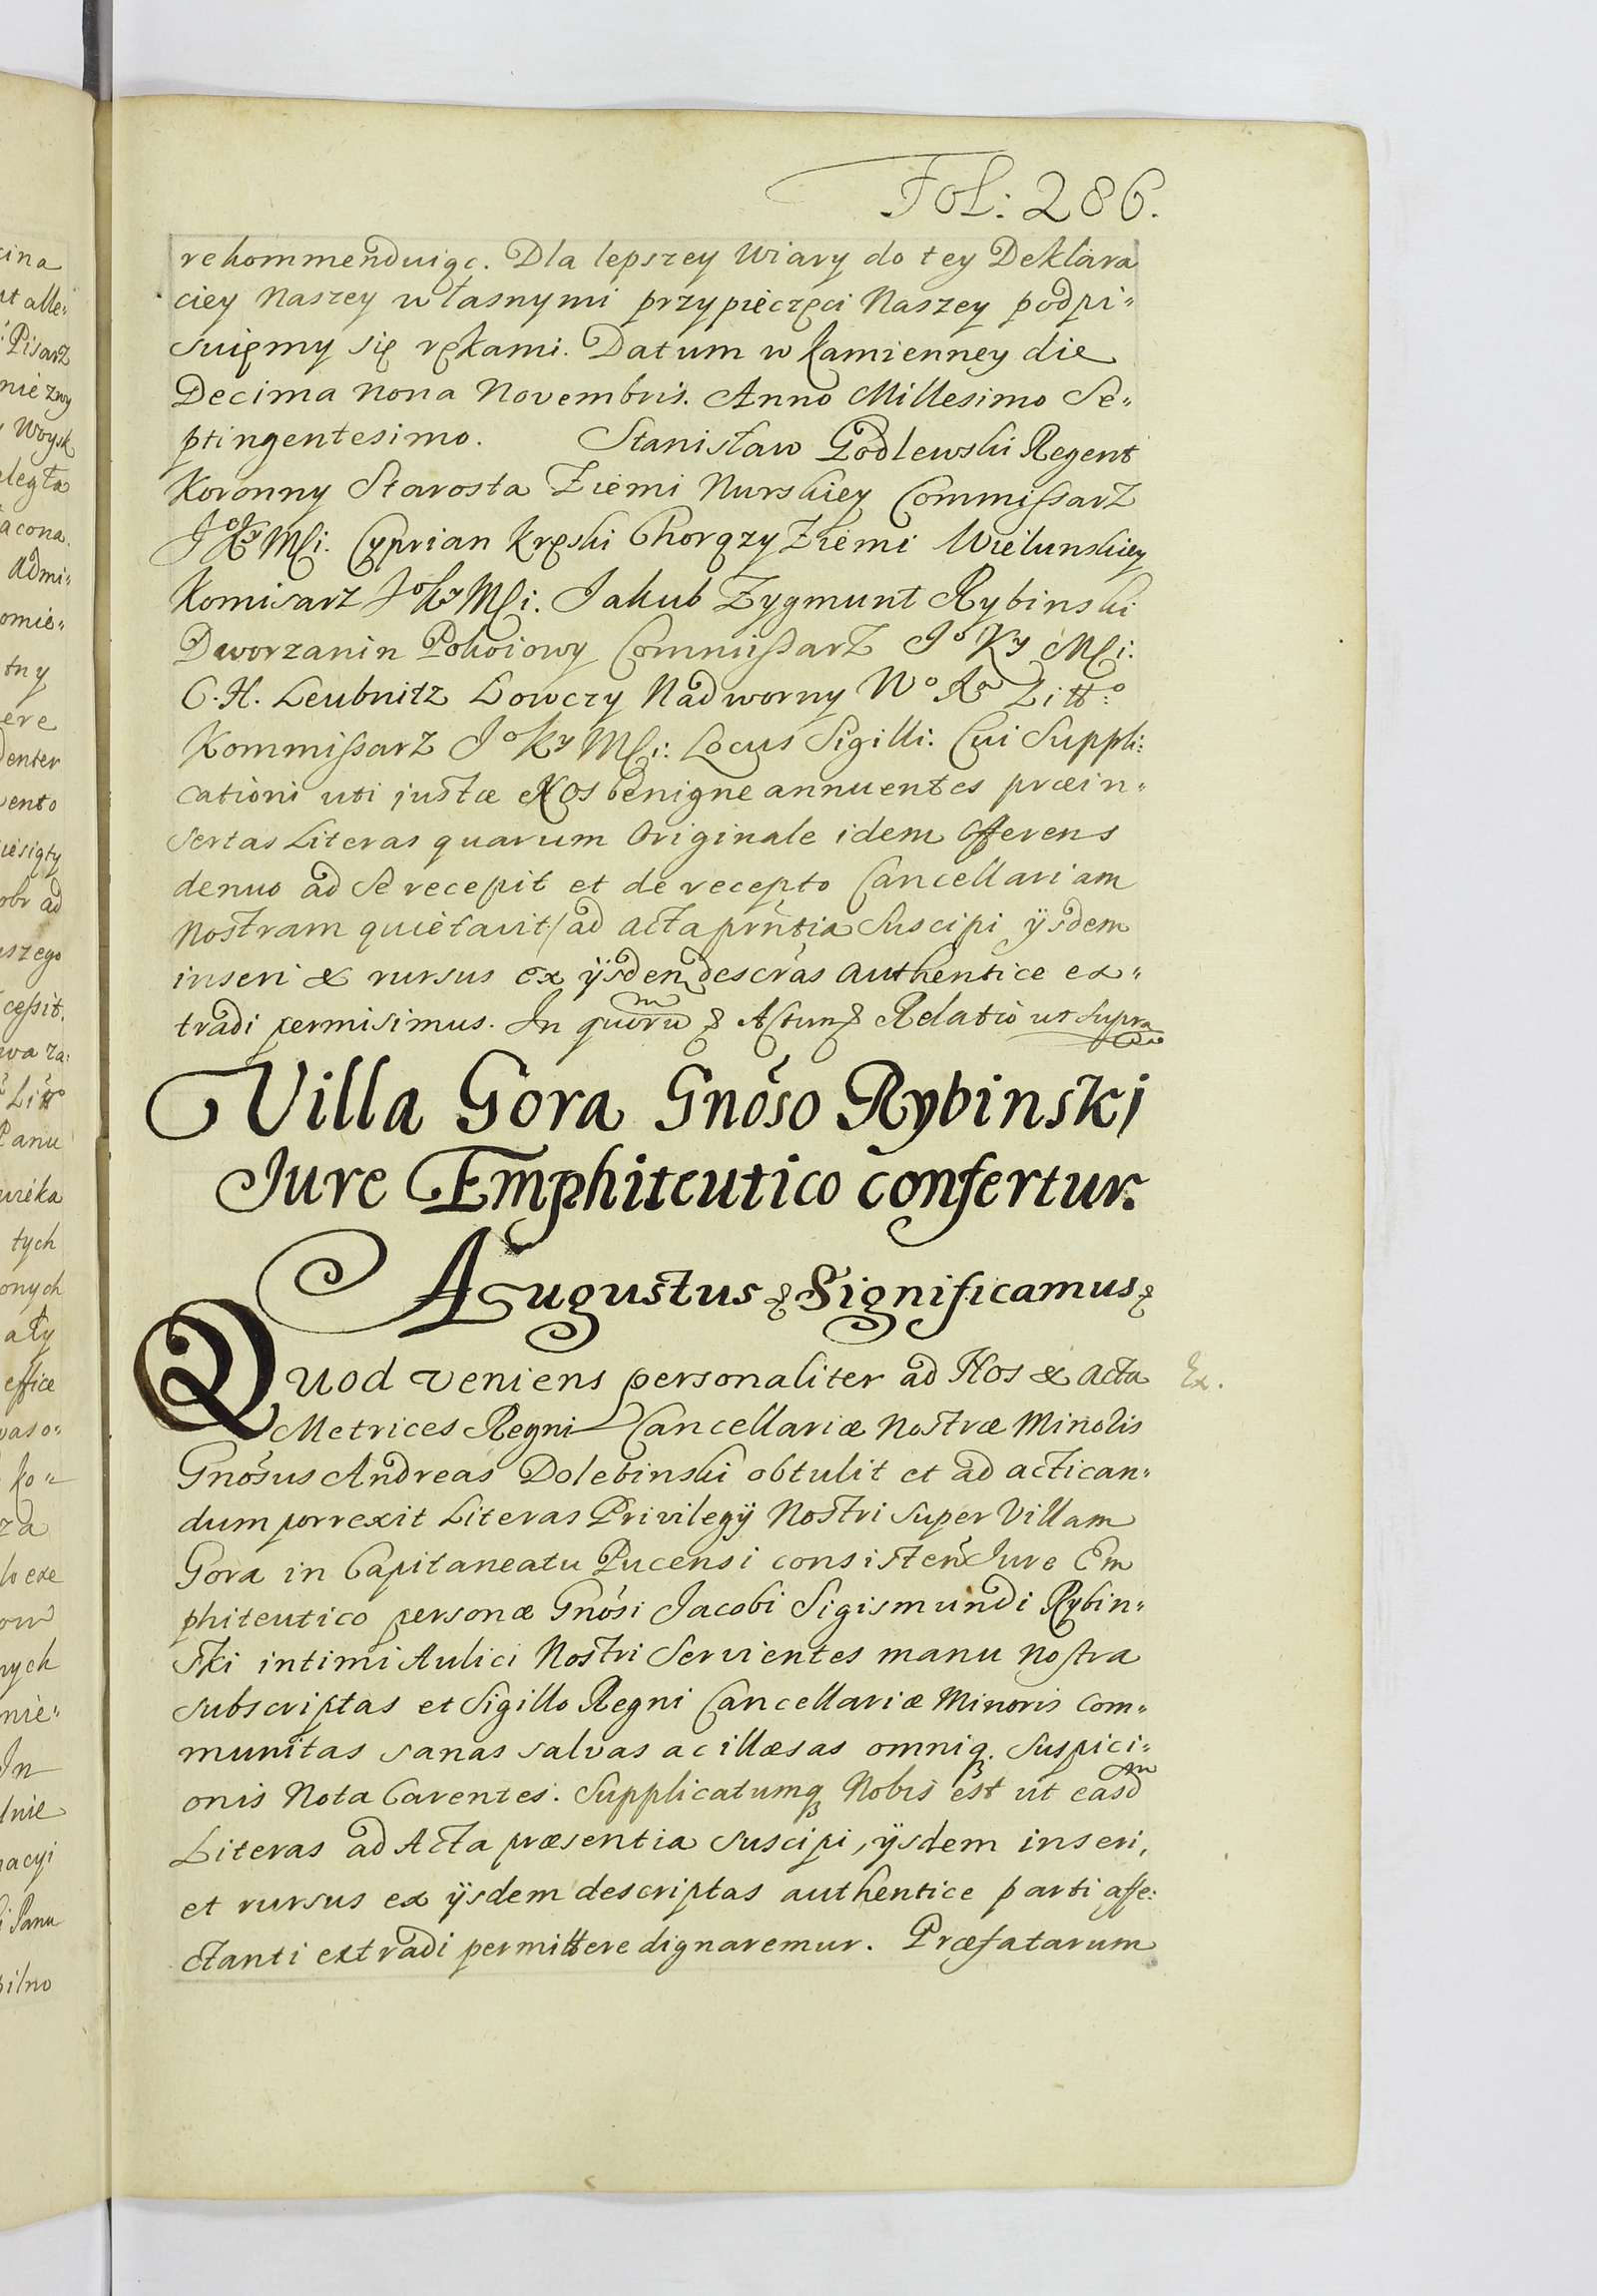 Fol: 286.
rekommenduiąc. Dla lepszey Wiary do tey Deklara
ciey Naszey własnymi przypieczęci Naszey podpi„
suięmy się rękami. Datum w kamienney die
Decima nona Novembris. Anno Millesimo Se„
ptingentesimo. Stanisław Godlewski Regent
Koronny Starosta Ziemi Nurskiey Commissarz
Jº Kʸ Mſci. Cyprian Kręski Chorązy Ziemi Wielunskiey
Komisarz Jº Kʸ Mſci. Jakub Zygmunt Rybinski
Dworzanin Pokoiowy Commissarz Jº Kʸ Mſci:
C. H. Leubnitz Łowczy Nadworny Wº Litt:º
Kommissarz Jº Kʸ Mſci: Locus Sigilli: Cui Suppli:
cationi uti justæ Nos benigne annuentes præin„
sertas Literas quarum Originale idem Offerens
denuo ad Se recepit et de recepto Cancellariam
Nostram quietavit/ ad acta prñtia Suscipi ÿsdem
inseri & rursus ex ÿsdem descrãs authentice ex„
tradi permisimus. In quoru(m) & Actum & Relatio ut supra
Villa Gora Gnõso Rybinski
Jure Emphiteutico confertur.
Augustus & Significamus &
Quod veniens personaliter ad Nos & acta
Ex.
Metrices Regni Cancellariæ Nostræ Minoris
Gnõsus Andreas Dolebinski obtulit et ad actican„
dum porrexit Literas Privilegÿ Nostri super Villam
Gora in Capitaneatu Pucensi consisteñ Jure Em
phiteutico personæ Gnõsi Jacobi Sigismundi Rybin„
ski intimi Aulici Nostri Servientes manu nostra
subscriptas et Sigillo Regni Cancellariæ Minoris com„
munitas sanas salvas ac illæsas omniq. suspici„
onis Nota Carentes. Supplicatumq Nobis est ut easdᵐ
Literas ad Acta præsentia suscipi, ÿsdem inseri,
et rursus ex ÿsdem descriptas authentice parti affe:
ctanti extradi permittere dignaremur. Præfatarum